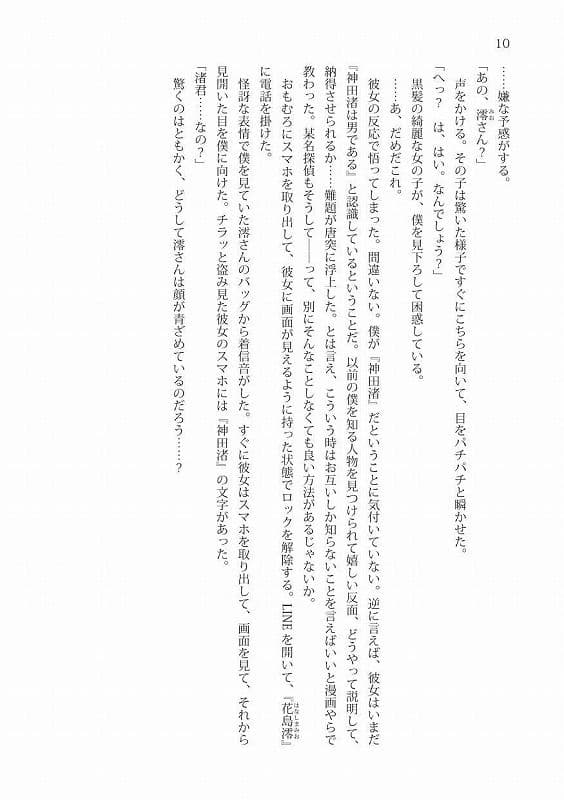 10
……嫌な予感がする。
「あの、澪さん？」
みお
声をかける。その子は驚いた様子ですぐにこちらを向いて、目をパチパチと瞬かせた。
「へっ？　は、はい。なんでしょう？」
黒髪の綺麗な女の子が、僕を見下ろして困惑している。
……あ、だめだこれ。
彼女の反応で悟ってしまった。間違いない。僕が『神田渚』だということに気付いていない。逆に言えば、彼女はいまだ
『神田渚は男である』と認識しているということだ。以前の僕を知る人物を見つけられて嬉しい反面、どうやって説明して、
納得させられるか……難題が唐突に浮上した。とは言え、こういう時はお互いしか知らないことを言えばいいと漫画やらで
教わった。某名探偵もそうして――って、別にそんなことしなくても良い方法があるじゃないか。
おもむろにスマホを取り出して、彼女に画面が見えるように持った状態でロックを解除する。LINEを開いて、『花島澪』
はなしまみお
に電話を掛けた。
怪訝な表情で僕を見ていた澪さんのバッグから着信音がした。すぐに彼女はスマホを取り出して、画面を見て、それから
見開いた目を僕に向けた。チラッと盗み見た彼女のスマホには『神田渚』の文字があった。
「渚君……なの？」
驚くのはともかく、どうして澪さんは顔が青ざめているのだろう……？